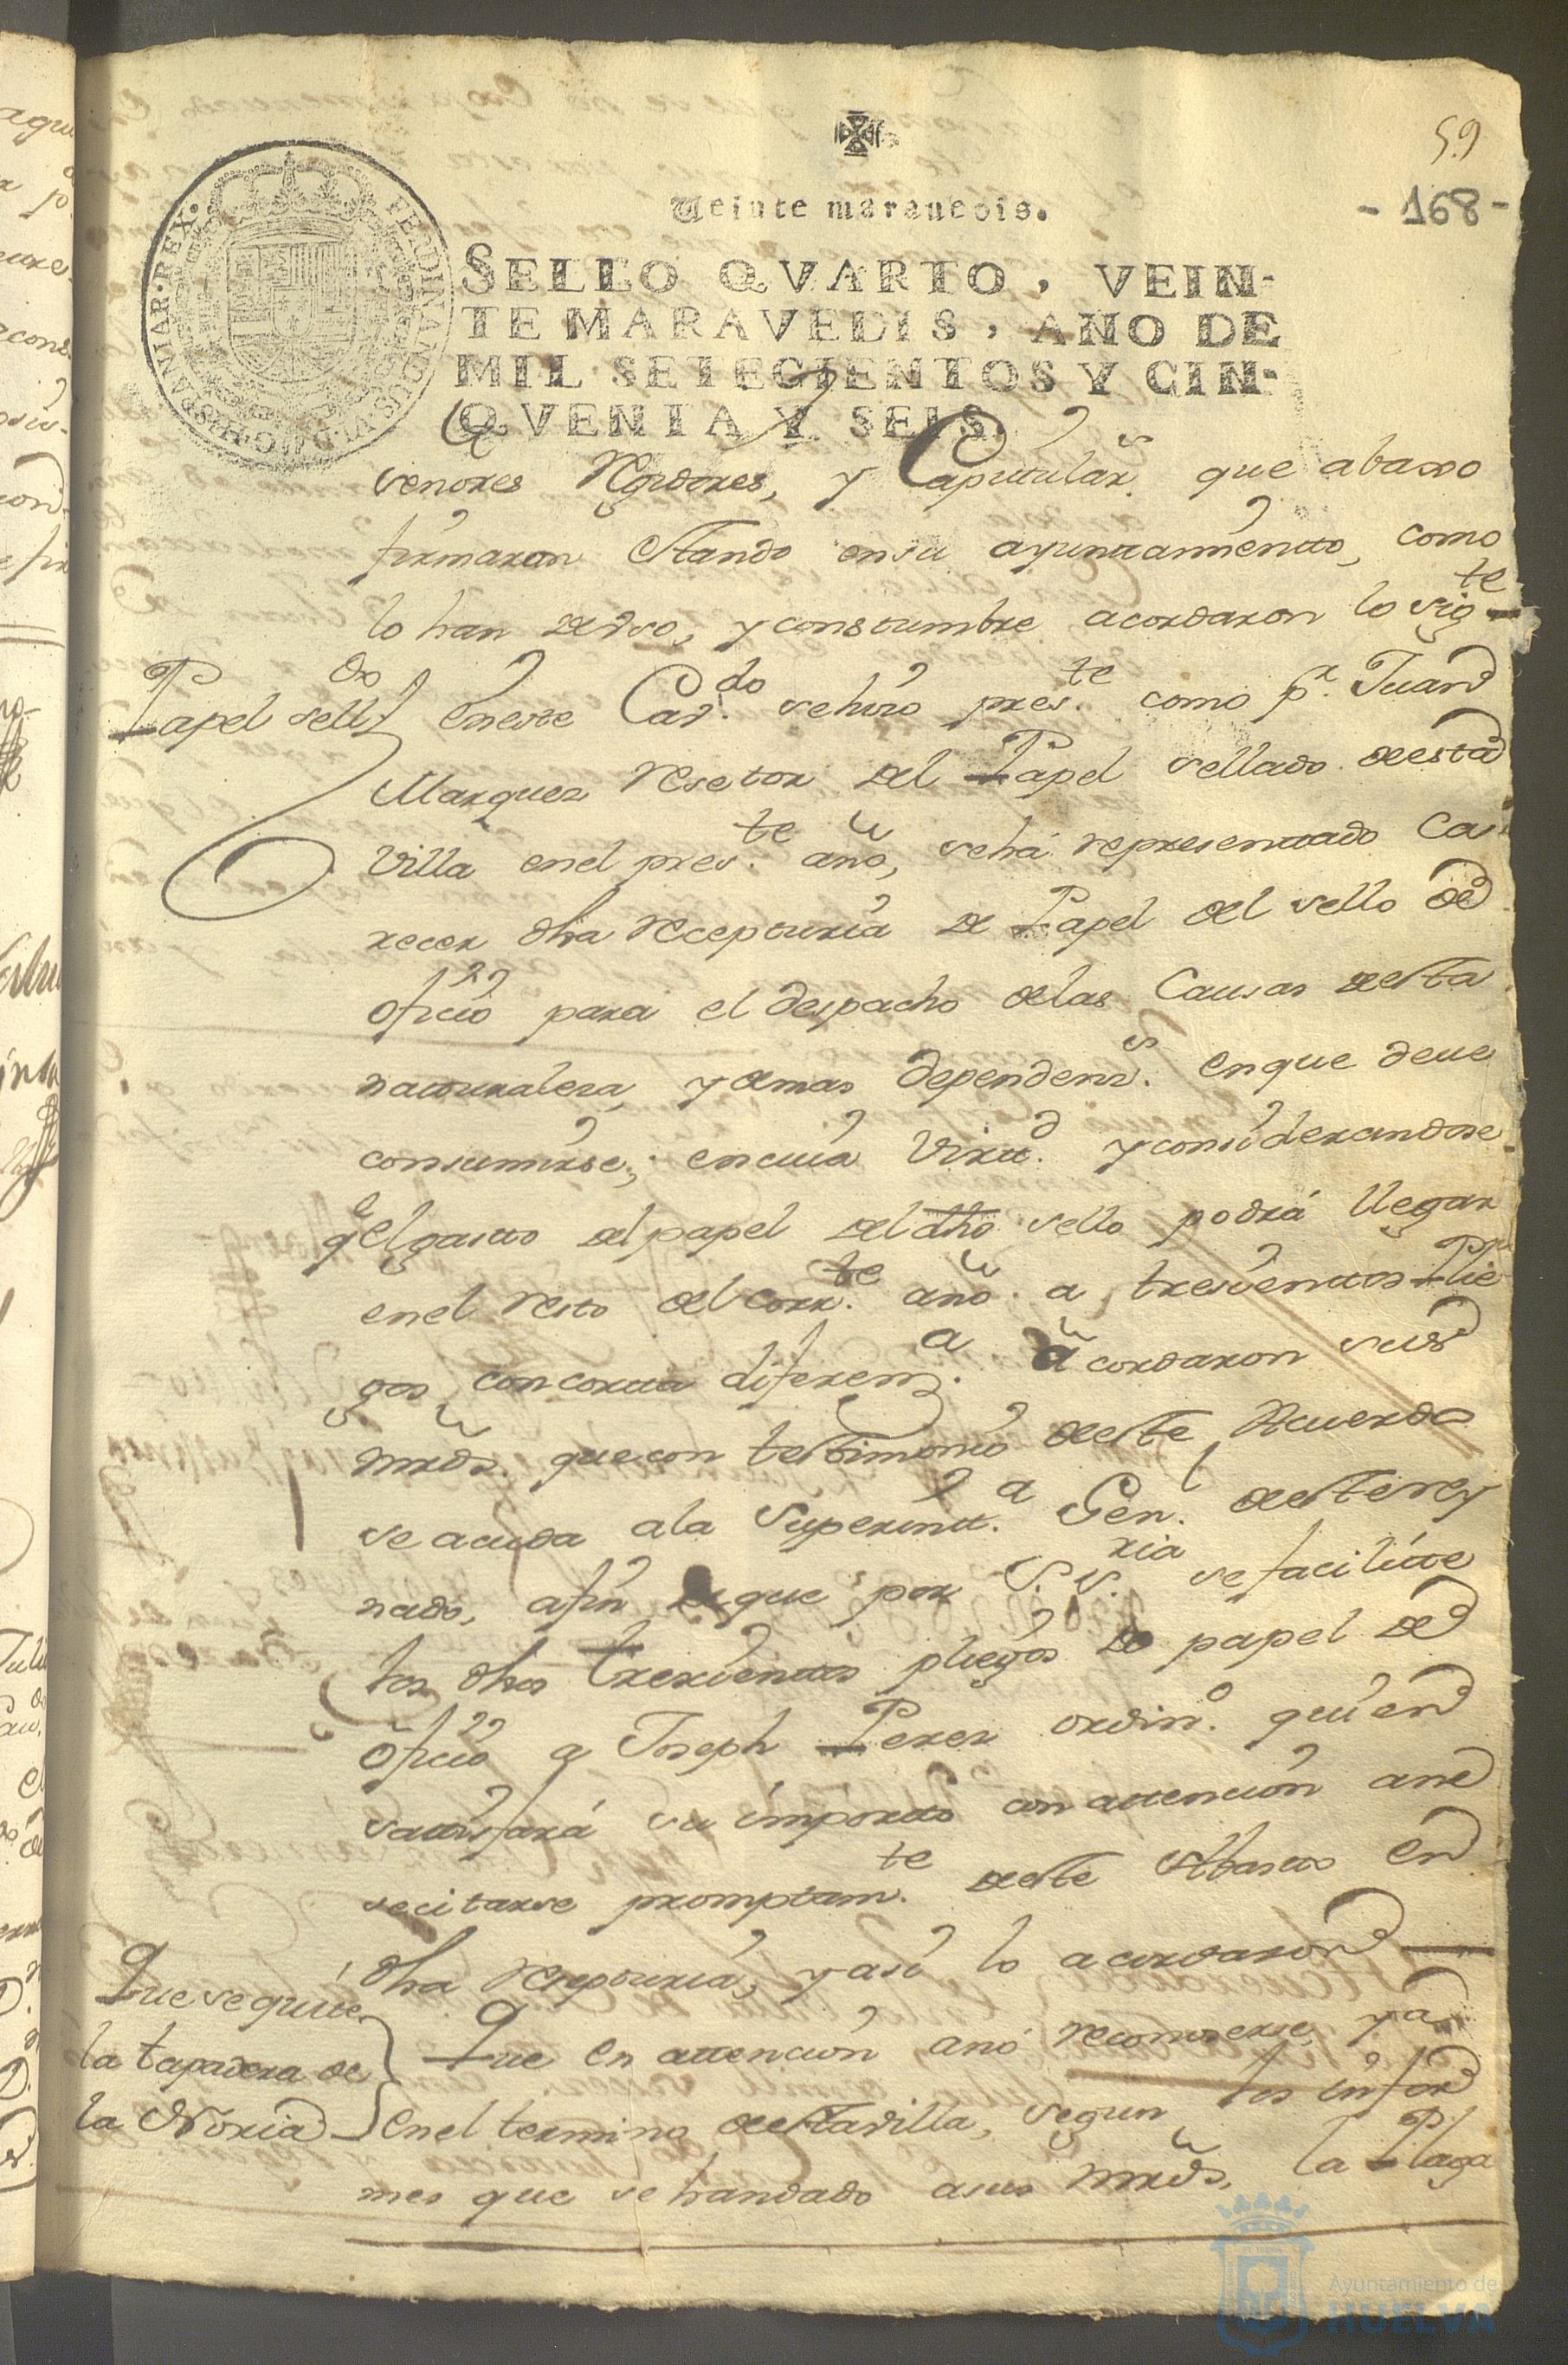 59
- 168 -
Veinte maravedis.
SELLO QVARTO, VEIN-
TE MARAVEDIS, AÑO DE
MIL SETECIENTOS Y CIN-
QVENTA Y SEIS.
FERDINANDUS·VI·D·G·HISPANIAR·REX·
señores Rexidores, y Capitular.s que abaxo
firmaron estando en su ayuntamiento, como
lo han de vso, y constumbre acordaron lo sig.te
Papel sell.do
En este Cav.do se hizo pres.te como p.r Juan
Marquez Resetor del Papel sellado de esta
Villa en el pres.te año, se ha representado Ca
recer dha Recepturia de Papel del sello de
oficio para el despacho de las Causas de esta
naturaleza, y demas dependenz.s en que deve
consumirse; en cuia Virtt.d y considerandose
q.e el gasto del papel del dho sello podrá llegar
en el resto del corr.te año a trescienttos Plie
gos con cortta diferenz.a acordaron sus
mrds. que con testimonio de este Acuerdo
se acuda a la Superintt.a Gen.l de este rey
nado, a fin de que por S. S.ria se facilitte
los dhos trescienttos pliegos de papel de
oficio a Joseph Perez ordin.o quien
sattisfará su importte con attención a ne
secitarse promptam.te de este Abasto en
dha Recepturia, y asi lo acordaron
Que se quitte
la tapadera de
la Noria
Que en attención a no reconoserse ya
en el termino de esta villa, segun los infor
mes que se han dado a sus mrds. la Plaga
Ayuntamiento de
HUELVA